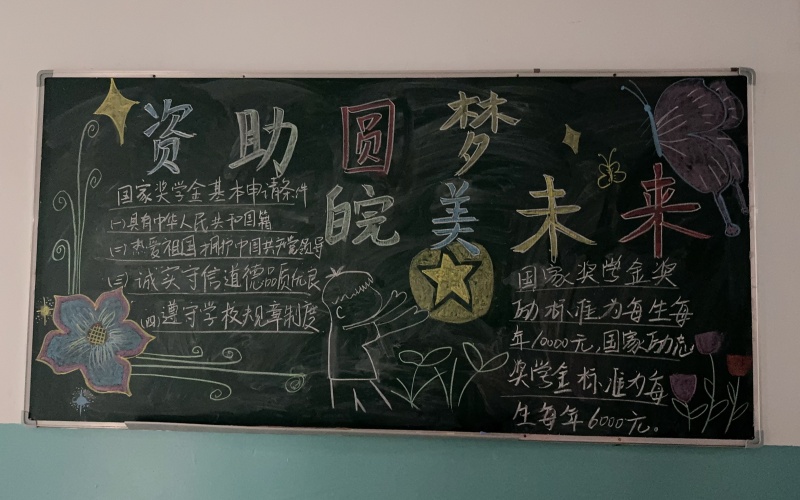 资助圆梦
皖美未来
国家奖学金基本申请条件
(一)具有中华人民共和国国籍
(二)热爱祖国拥护中国共产党领导
(三)诚实守信道德品质优良
(四)遵守学校规章制度
国家奖学金奖
励标准为每生每
年10000元,国家励志
奖学金标准为每
生每年6000元。